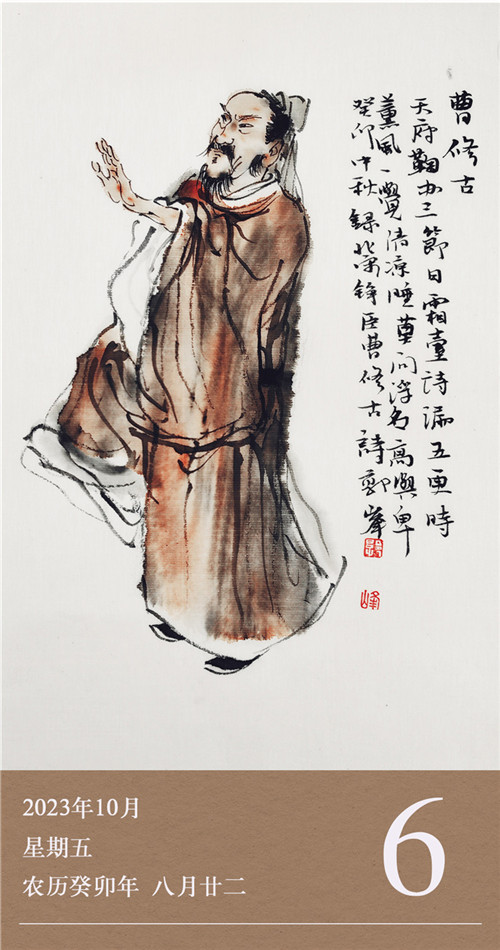 曹修古
天府鞫囚三節日霜臺詩漏五更時
薰風一覺清凉睡莫问浮名高與卑
癸卯中秋錄北宋錚臣曹修古詩鄭峰
峰
2023年10月
星期五
农历癸卯年 八月廿二
6